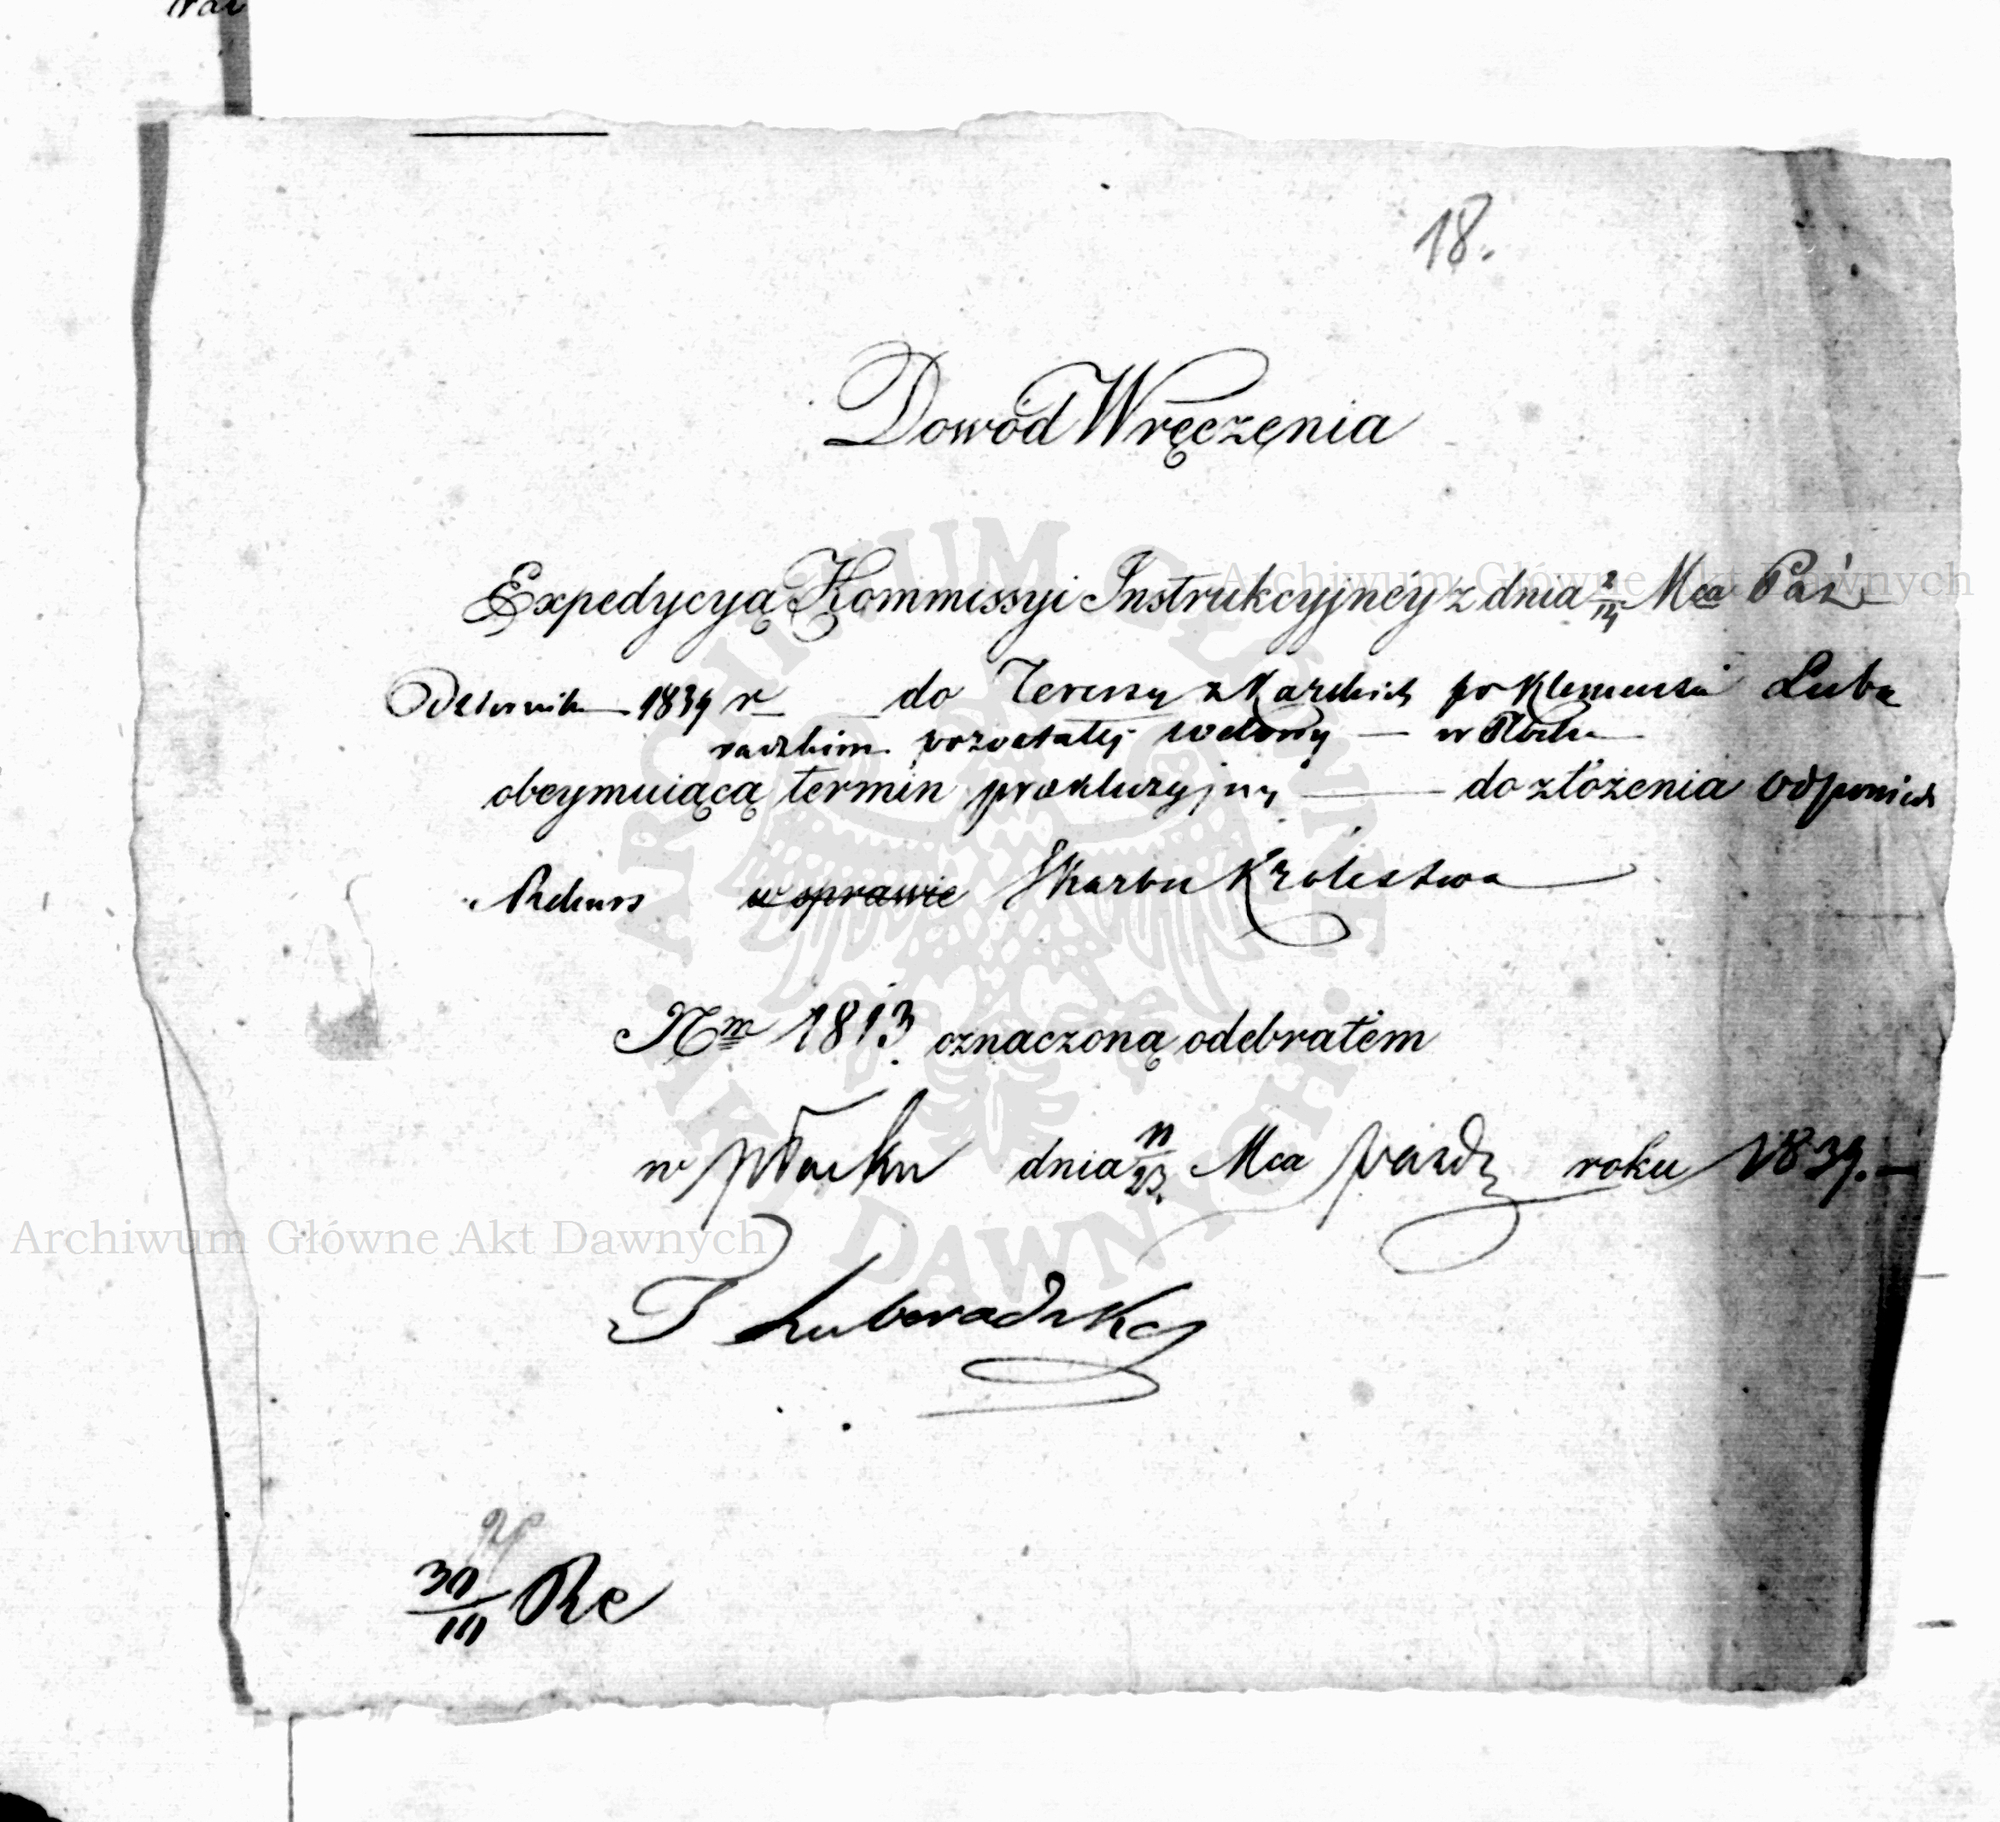 18.
Dowód Wręczenia
Expedycyą Kommissyi Instrukcyjney z dnia 2/14 Mca Paź
dziernika 1839 r do Teressy z Karskich po Klemensie Luba
radzkim pozostałej wdowy — w Płocku
obeymuiącą termin prekluzyjny — do złożenia odpowied
Rekurs w sprawie Skarbu Królestwa
Nrm 1813 oznaczoną odebrałem
w Płocku dnia 11/23 Mca paźdz roku 1839.—
T Lubaradzka
30/10 Re
Archiwum Główne Akt Dawnych
Archiwum Główne Akt Dawnych
ARCHIWUM GŁÓWNE
AKT DAWNYCH